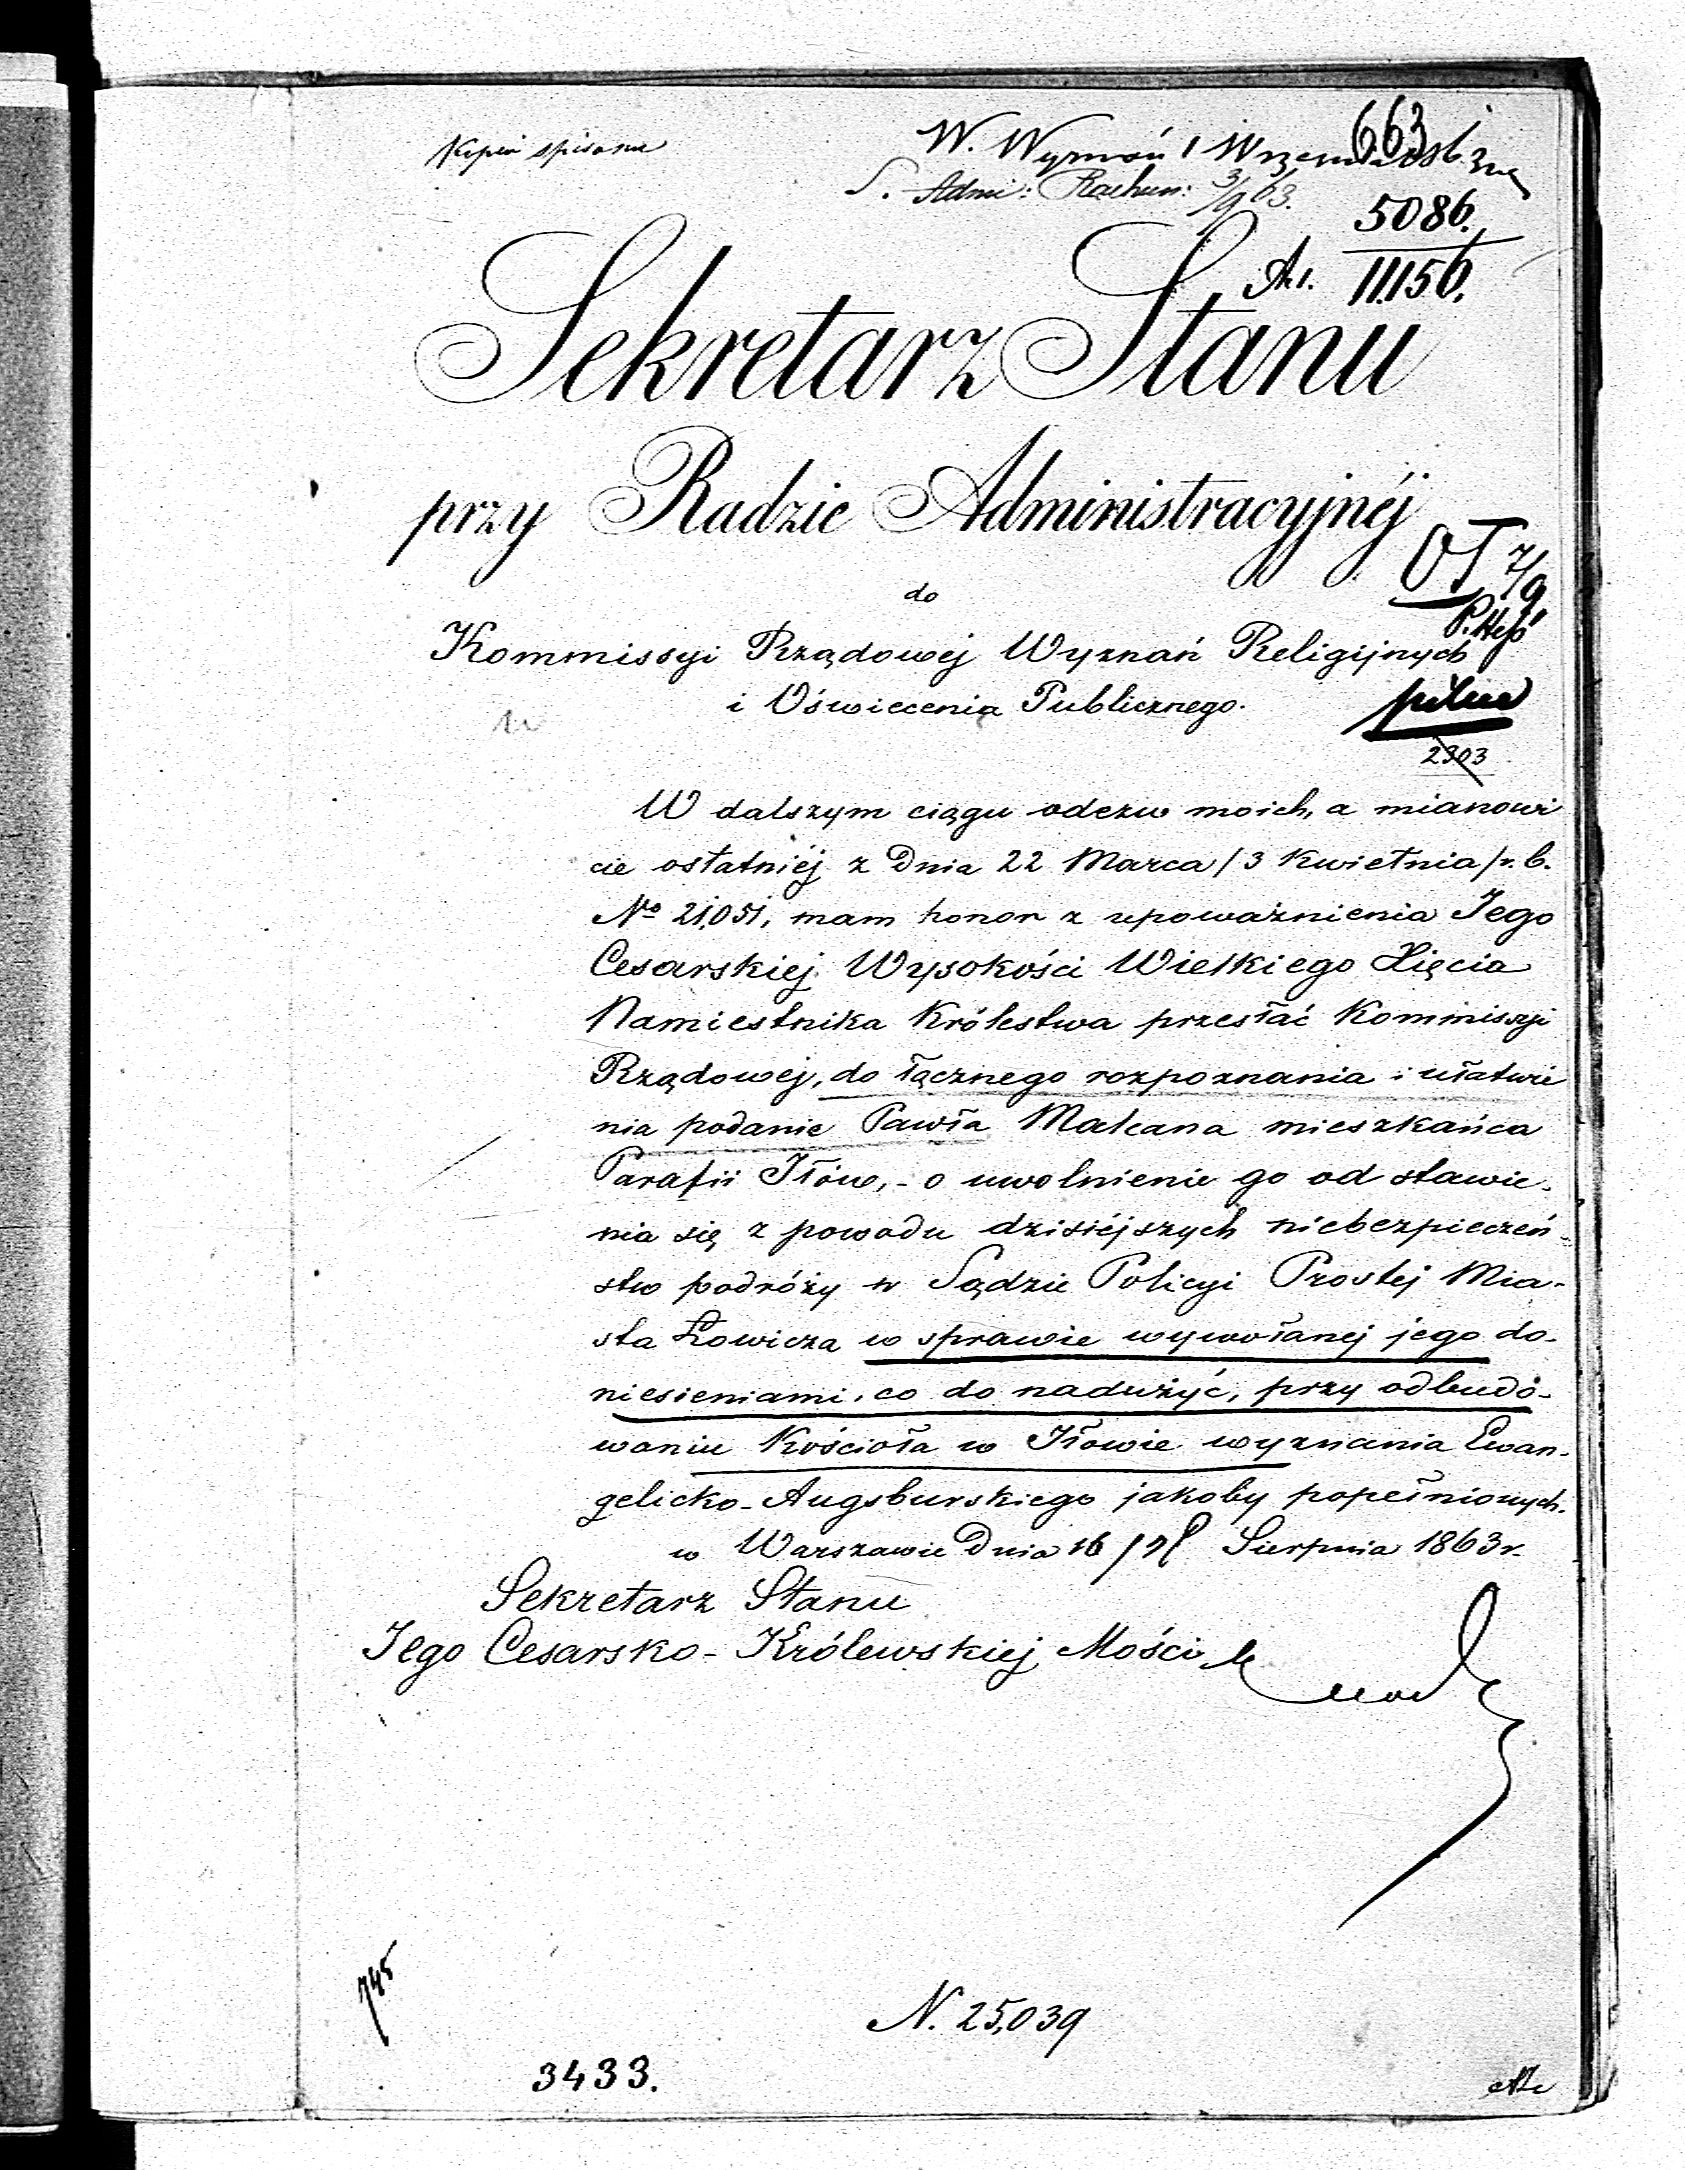 Kopia spisana
W. Wyznań 1 Września
663
S. Admi: Rachun: 3/9 63.
5086.
11156.
Sekretarz Stanu
przy Radzie Administracyjnéj
7/9
do
Kommissyi Rządowéj Wyznań Religijnych
i Oświecenia Publicznego.
pilne
2303
W dalszym ciągu odezw moich, a mianowi
cie ostatniéj z Dnia 22 Marca /3 Kwietnia/ r. b.
No 21,051, mam honor z upoważnienia Jego
Cesarskiej Wysokości Wielkiego Xięcia
Namiestnika Królestwa przesłać Kommissyi
Rządowej, do łącznego rozpoznania i ułatwie
nia podanie Pawła Malcana mieszkańca
Parafii Iłów, - o uwolnienie go od stawie-
nia się z powodu dzisiéjszych niebezpieczeń-
stw podróży w Sądzie Policyi Prostej Mia-
sta Łowicza w sprawie wywołanej jego do-
niesieniami, co do nadużyć, przy odbudo-
waniu Kościoła w Iłowie wyznania Ewan-
gelicko-Augsburskiego jakoby popełnionych.
w Warszawie Dnia 16 /28 Sierpnia 1863 r.
Sekretarz Stanu
Jego Cesarsko-Królewskiej Mości
745
N. 25,039
3433.